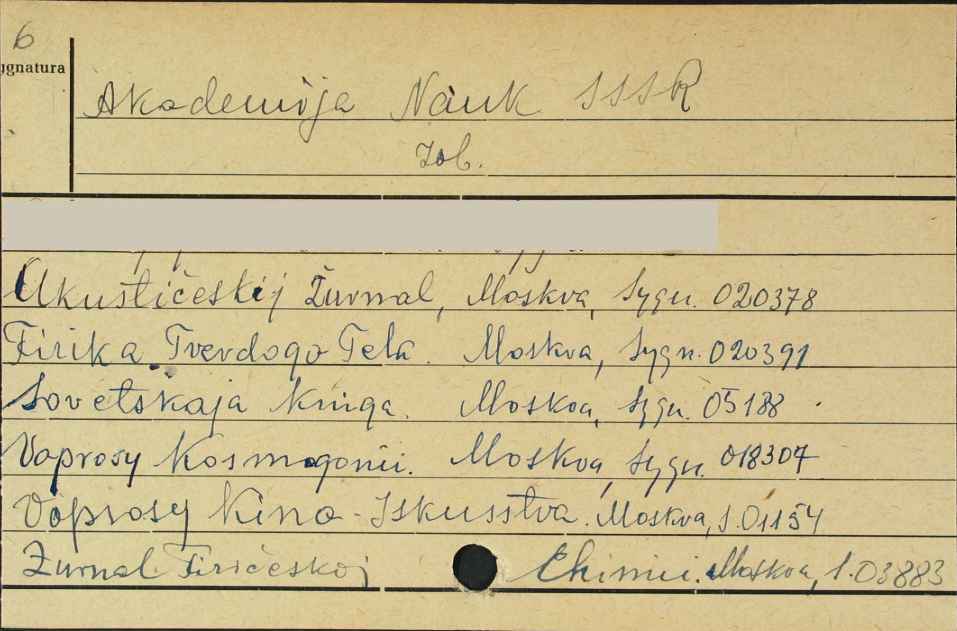 6
ygnatura
Akademija Nauk SSSR
Zob.
Akustičeskij Žurnal, Moskva, Sygn. 020378
Fizika Tverdogo Tela. Moskva, Sygn. 020391
Sovetskaja Kniga. Moskva, Sygn. 05188
Voprosy Kosmogonii. Moskva, Sygn. 018307
Voprosy Kino-Iskusstva. Moskva, S.01154
Žurnal Fizičeskoj Chimii. Moskva, S.03883